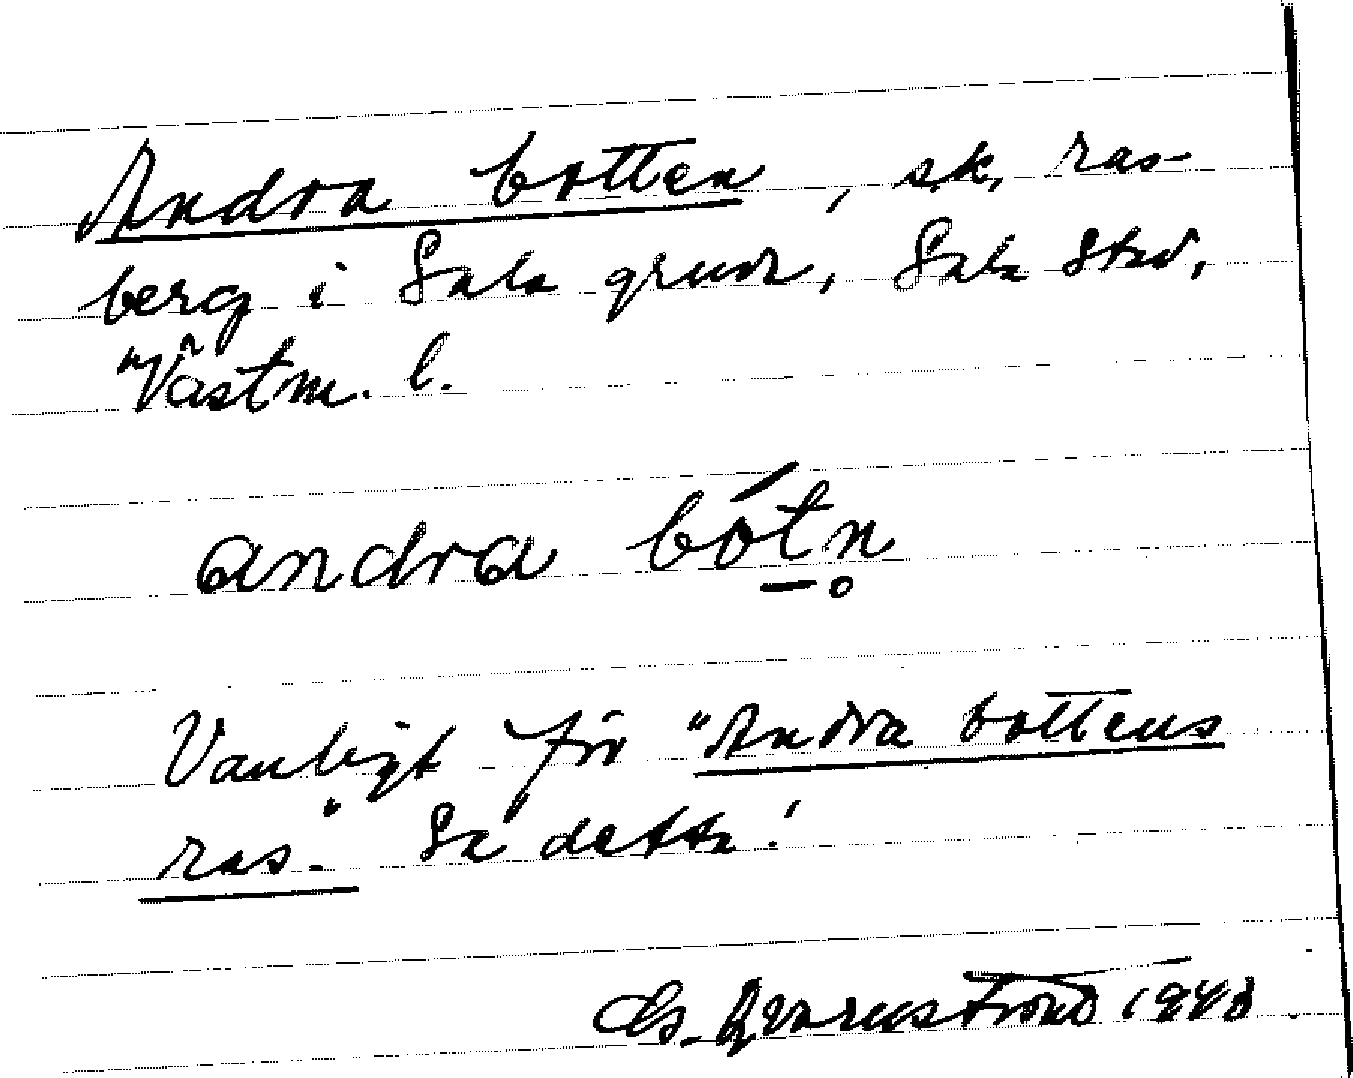 Andra botten, s.k. ras-
berg i Sala gruva, Sala stad,
Västm. l.
andra bót̠n̥
Vanligt för "Andra bottens
ras". Se detta!
G. Qvarnström 1943